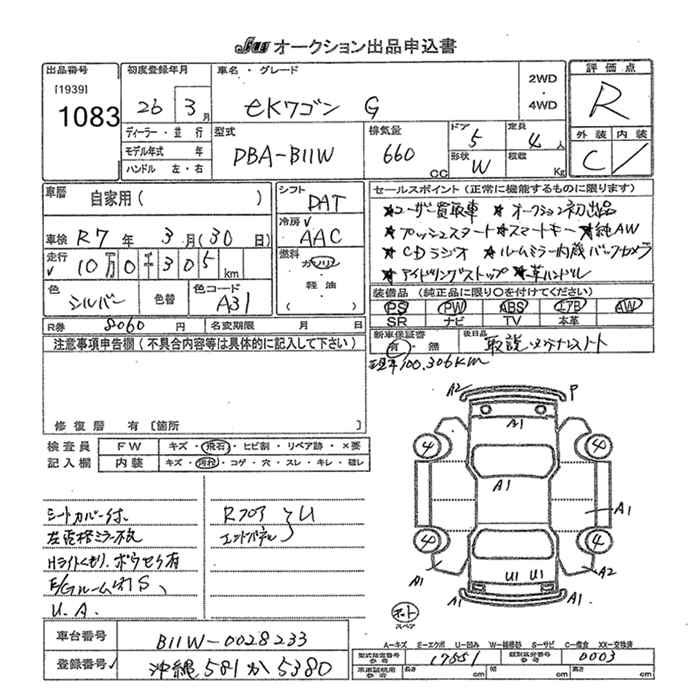 JU オークション出品申込書
出品番号
[1939]
1083
初度登録年月
26 3月
車名・グレード
eKワゴン G
2WD
・
4WD
評価点
R
外装 内装
C
ディーラー・並行
モデル年式 年
ハンドル 左・右
型式
DBA-B11W
排気量
660 CC
ドア
5
形状
W
定員
4人
積載
Kg
車歴
自家用( )
シフト
DAT
車検 R7年 3月(30日)
冷房
AAC
走行
10万0千305km
燃料
ガソリン
・
軽油
( )
色
シルバー
色替
色コード
A31
R券 8060円
名変期限 月 日
セールスポイント(正常に機能するものに限ります)
★ユーザー買取車 ★オークション初出品
★プッシュスタート★スマートキー★純AW
★CDラジオ ★ルームミラー内蔵バックカメラ
★アイドリングストップ ★革ハンドル
装備品(純正品に限り○を付けてください)
PS PW ABS エアB AW
SR ナビ TV 本革
新車保証書
有・無
後日品
取説
現車100,306km
注意事項申告欄(不具合内容等は具体的に記入して下さい)
修復歴 有〔箇所
検査員
記入欄
FW キズ・飛石・ヒビ割・リペア跡・×要
内装 キズ・汚れ・コゲ・穴・スレ・キレ・磁レ
シートカバー付、
左電格ミラー不良
Hライトくもり、ボウセイ有
E/Gルーム サS、
U.A.
Rフロア
エンドパネル
U
A2
P
A1
4
4
A1
A1
4
4
U1 U1
A1
A2
A1
A1
スペア
車台番号 B11W-0028233
登録番号 沖縄 581 か 5380
A―キズ E―エクボ U―凹み W―補修跡 S―サビ C―腐食 XX―交換済
型式指定番号
参考
17551
類別区分番号
参考
0003
車庫証明用
参考
長さ cm 幅 cm 高さ cm